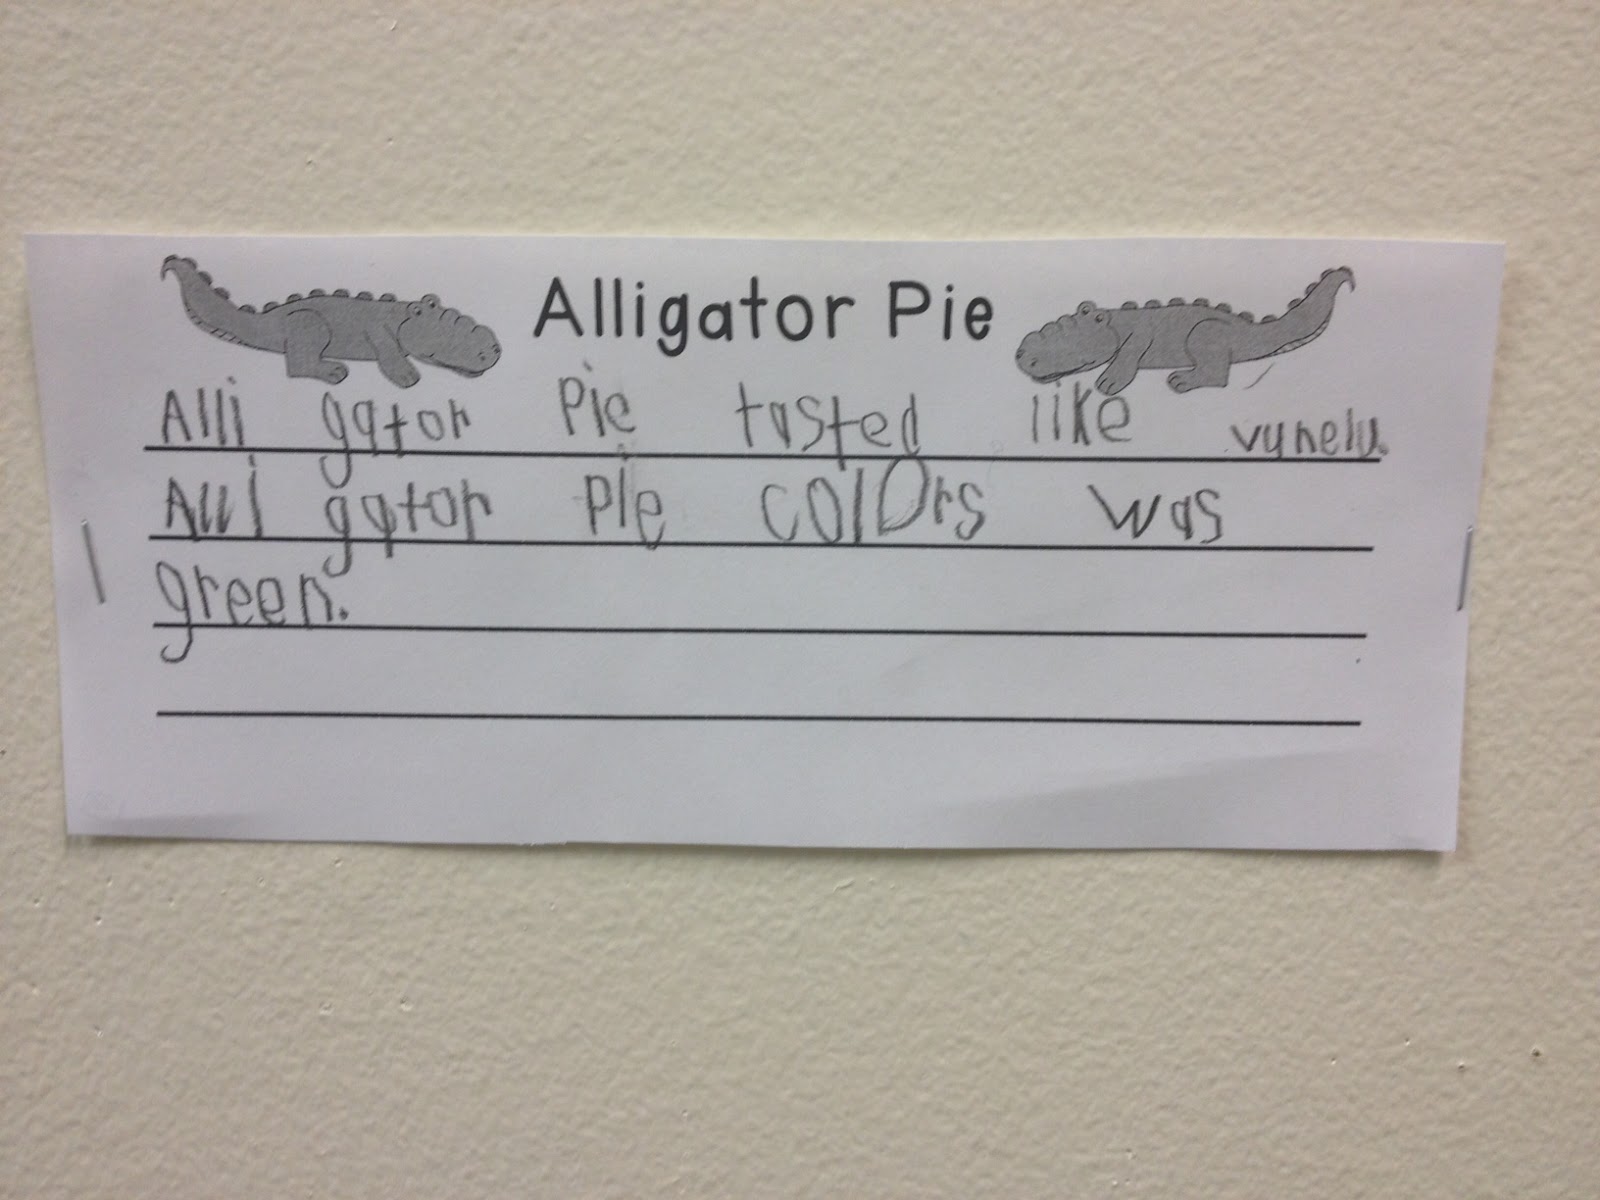 Alligator Pie
Alli gator Pie tasted like vunelu.
Alli gator Pie colors was
green.